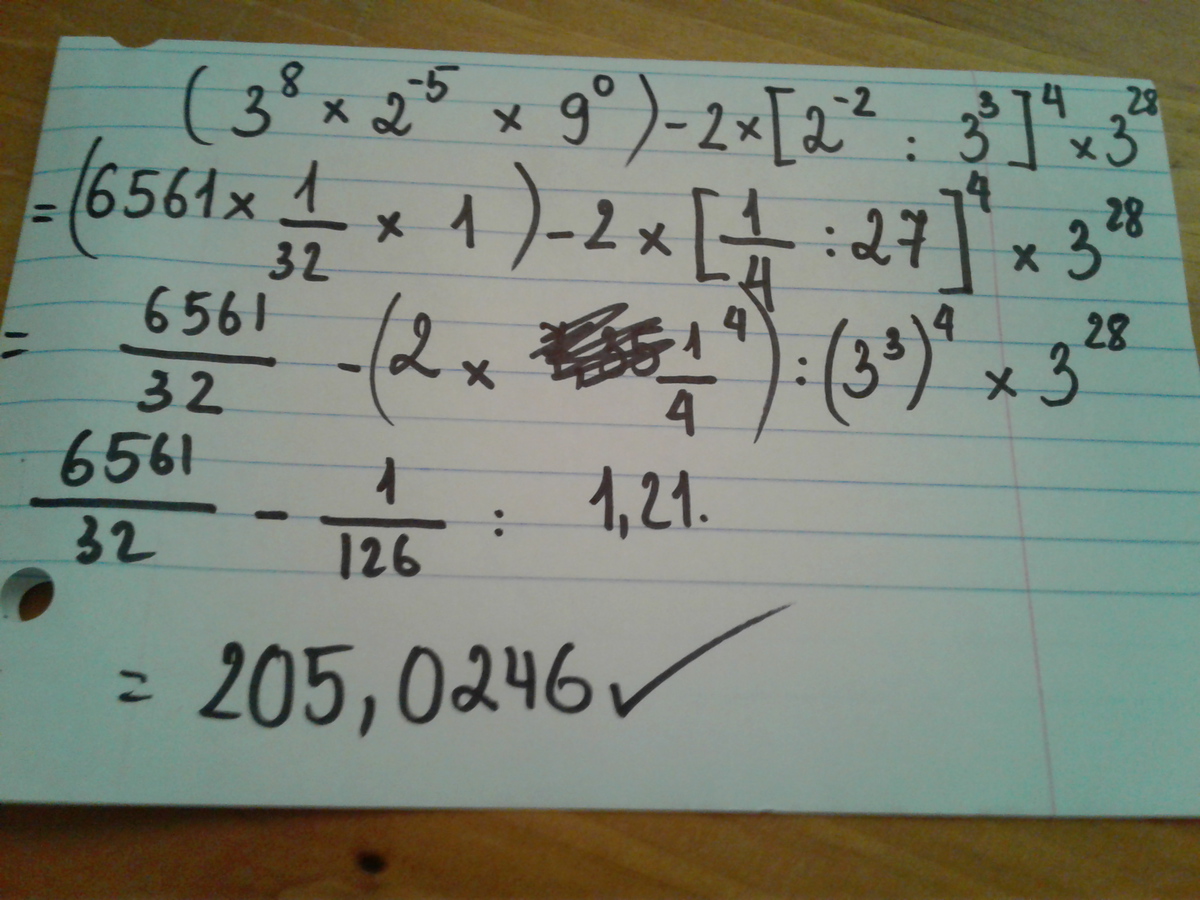 (3⁸ × 2⁻⁵ × 9⁰) - 2 × [2⁻² : 3³]⁴ × 3²⁸
= (6561 × 1/32 × 1) - 2 × [1/4 : 27]⁴ × 3²⁸
= 6561/32 - (2 × 1/4⁴) : (3³)⁴ × 3²⁸
6561/32 - 1/126 : 1,21.
= 205,0246 ✓